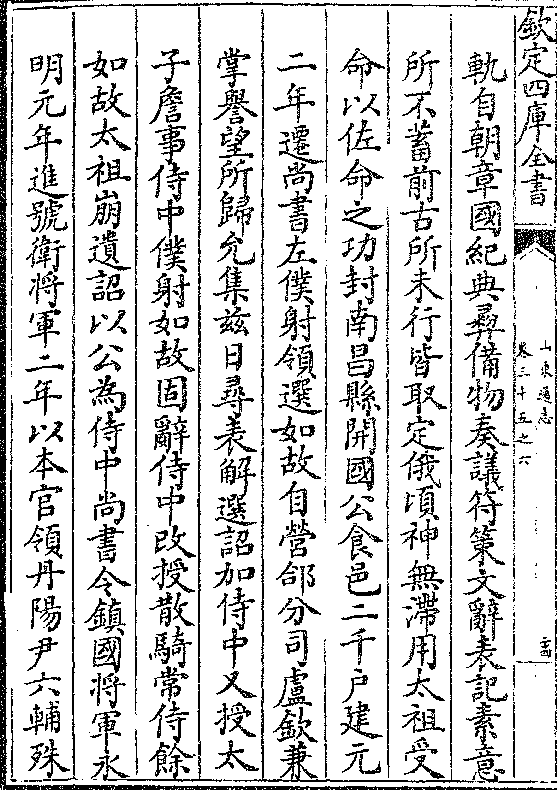 欽定四庫全書
山東通志
卷三十五之六
軌自朝章國紀典彛備物奏議符策文辭表記素意
所不蓄前古所未行皆取定俄頃神無滯用太祖受
命以佐命之功封南昌縣開國公食邑二千户建元
二年遷尚書左僕射領選如故自營郃分司盧欽兼
掌譽望所歸允集兹日尋表解選詔加侍中又授太
子詹事侍中僕射如故固辭侍中改授散騎常侍餘
如故太祖崩遺詔以公為侍中尚書令鎮國將軍永
明元年進號衛將軍二年以本官領丹陽尹六輔殊